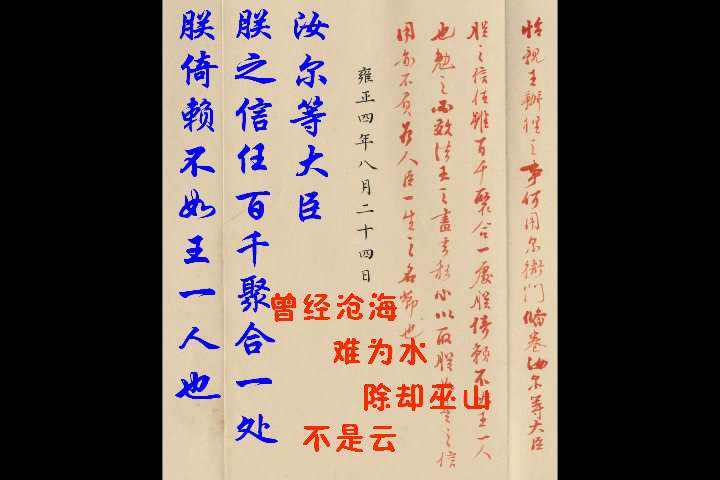 怡親王辦理之事何用尔衙門俻卷汝尔等大臣
朕之信任雖百千聚合一處朕倚賴不如王一人
也勉之效法王之小以取朕之信
用亦不負為人臣一生之名節也
雍正四年八月二十四日
汝尔等大臣
朕之信任百千聚合一处
朕倚赖不如王一人也
曾经沧海
难为水
除却巫山
不是云